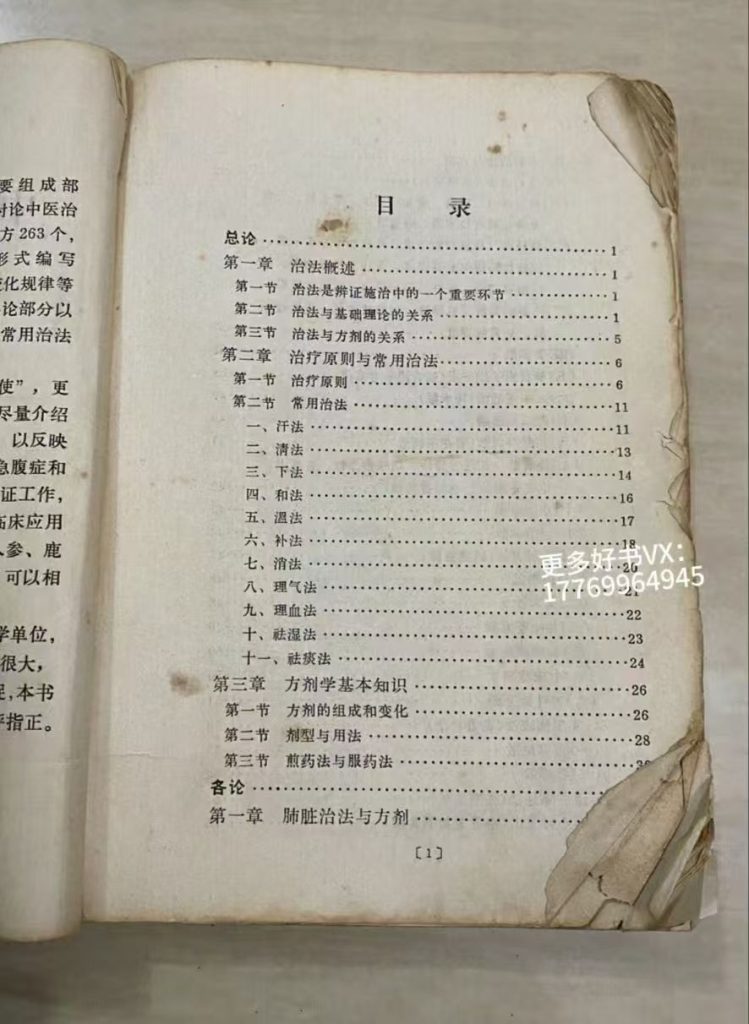 要组成部
讨论中医治
方263个，
形式编写
变化规律等
论部分以
常用治法
使”，更
尽量介绍
以反映
急腹症和
证工作，
临床应用
人参、鹿
可以相
学单位，
很大，
本书
评指正。
目 录
总论……1
第一章 治法概述……1
第一节 治法是辨证施治中的一个重要环节……1
第二节 治法与基础理论的关系……1
第三节 治法与方剂的关系……5
第二章 治疗原则与常用治法……6
第一节 治疗原则……6
第二节 常用治法……11
一、汗法……11
二、清法……13
三、下法……14
四、和法……16
五、温法……17
六、补法……18
七、消法……20
八、理气法……21
九、理血法……22
十、祛湿法……23
十一、祛痰法……24
第三章 方剂学基本知识……26
第一节 方剂的组成和变化……26
第二节 剂型与用法……28
第三节 煎药法与服药法……
各论……
第一章 肺脏治法与方剂……
〔1〕
更多好书VX：
17769964945